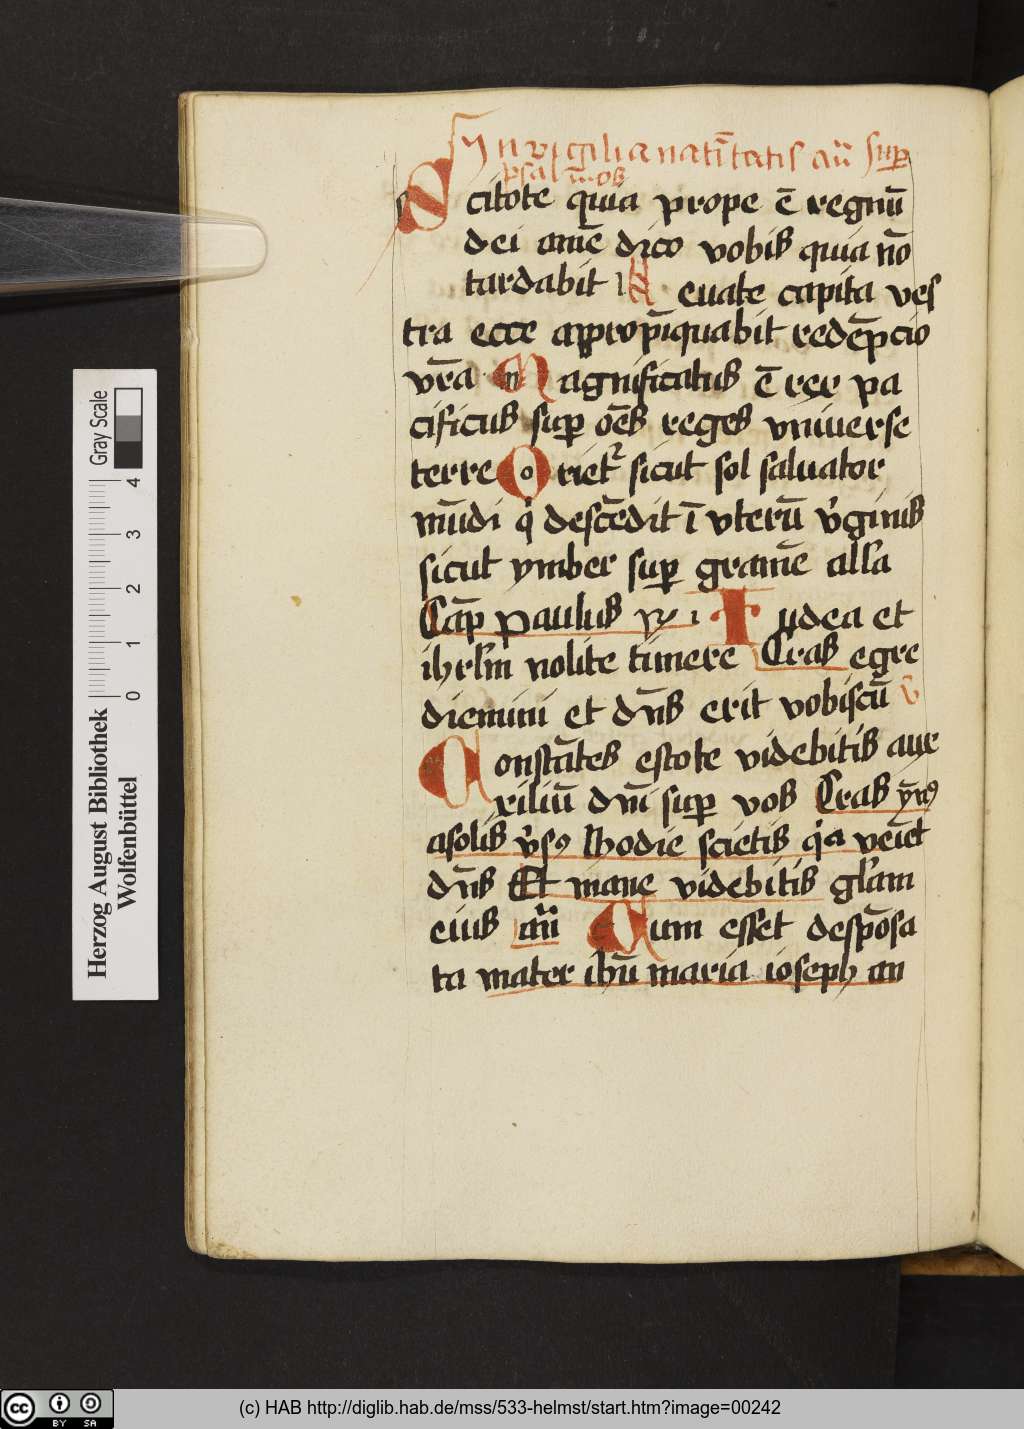 In vigilia natītatis añ sup
psalmos
Scitote quia prope ē regnū
dei amē dico vobis quia nō
tardabit Leuate capita ves
tra ecce appropīquabit redēpcio
vr̄a Magnificatus ē rex pa
cificus sup oēs reges vniuerse
terre Orietr sicut sol saluator
mūdi q descēdit ī vterū v̄ginis
sicut ymber sup gramē alla
Cap̄ Paulus Iudea et
ihrlm nolite timere Cras egre
diemini et dn̄s erit vobiscū v̄
Constātes estote videbitis aux
xiliū dn̄i sup vos Cras
asolis Hodie scietis qa veniet
dn̄s Et mane videbitis glam
eius an̄ Cum esset despōsa
ta mater ihū maria ioseph an
Herzog August Bibliothek
Wolfenbüttel
0 1 2 3 4
Gray Scale
cc BY SA
(c) HAB http://diglib.hab.de/mss/533-helmst/start.htm?image=00242